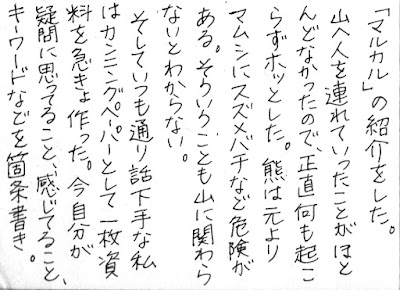 「マルカル」の紹介をした。
山へ人を連れていったことがほと
んどなかったので、正直何も起こ
らずホッとした。熊は元より
マムシにスズメバチなど危険が
ある。そういうことも山に関わら
ないとわからない。
そしていつも通り話下手な私
はカンニングペーパーとして一枚資
料を急きょ作った。今自分が
疑問に思ってること、感じてること、
キーワードなどを箇条書き。